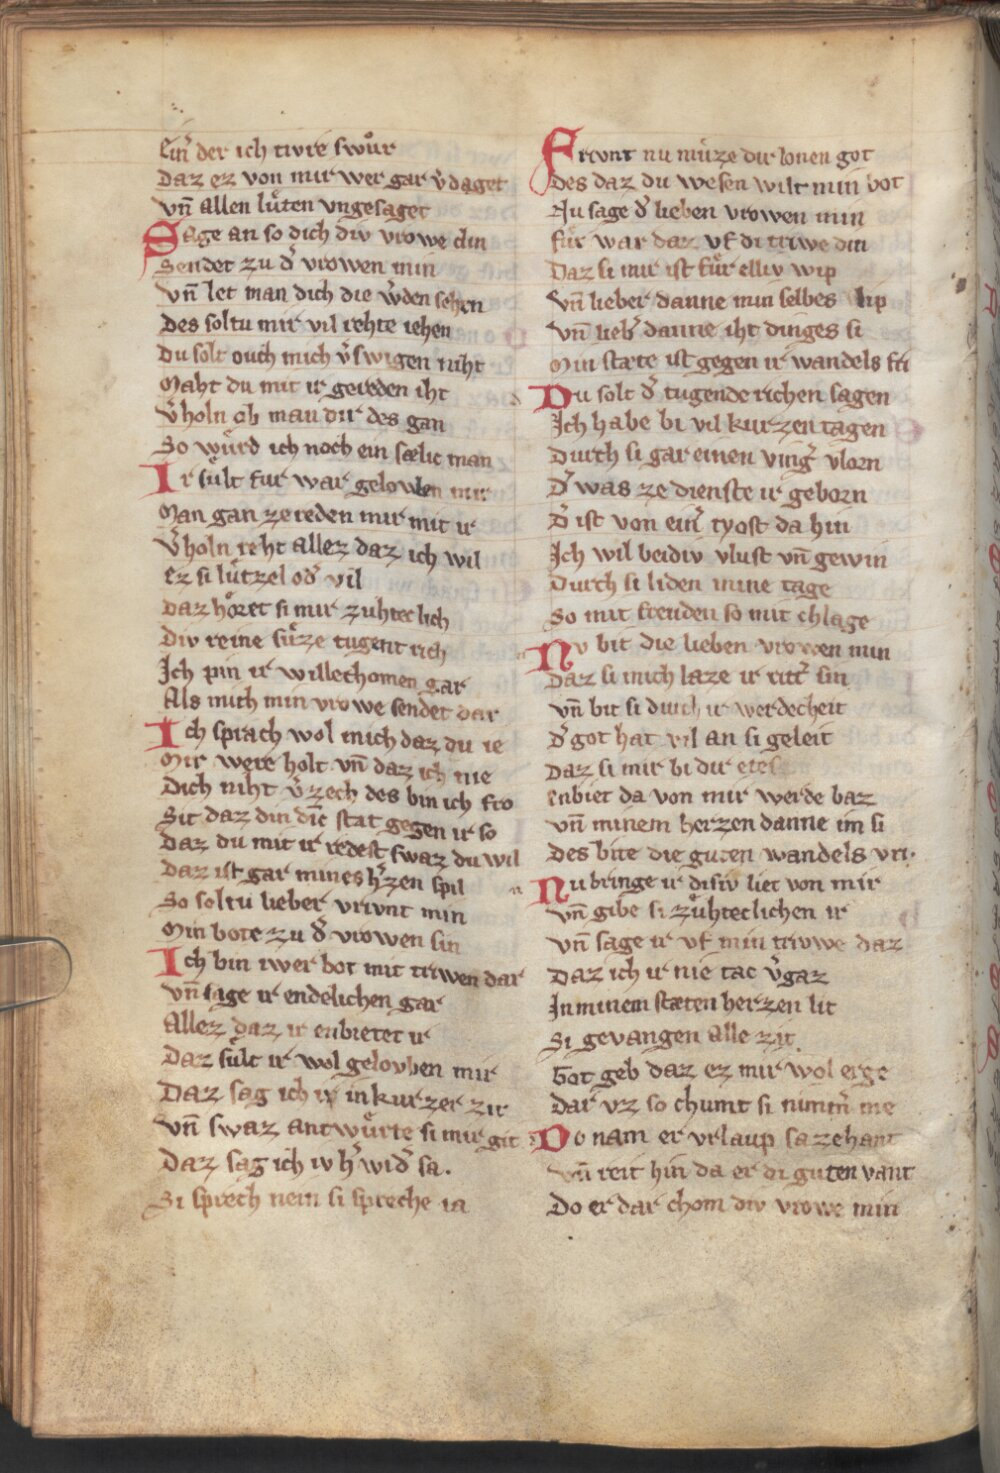 Ein̄ der ich tivre swůr
Daz ez von mir wer gar v̄daget
Vn̄ allen lůten vngesaget
Sage an so dich div vrowe din
Sendet zu d̄ vrowen min
Vn̄ let man dich die w̄den sehen
Des soltu mir vil rehte iehen
Du solt ouch mich v̄swigen niht
Maht du mit ir gereden iht
V̄holn ob man dir des gan
So wůrd ich noch ein sælic man
Ir sůlt fur war gelovben mir
Man gan ze reden mir mit ir
V̄holn reht allez daz ich wil
Ez si lůtzel od̄ vil
Daz hőret si mir zuhteclich
Div reine sůze tugent rich
Ich pin ir willechomen gar
Als mich min vrowe sendet dar
Ich sprach wol mich daz du ie
Mir were holt vn̄ daz ich nie
Dich niht v̄zech des bin ich fro
Sit daz din din̄c stat gegen ir so
Daz du mit ir redest swaz du wil
Daz ist gar mines h̄zen spil
So soltu lieber vrivnt min
Min bote zu d̄ vrowen sin
Ich bin iwer bot mit triwen dar
Vn̄ sage ir endelichen gar
Allez daz ir enbietet ir
Daz sůlt ir wol gelovben mir
Daz sag ich ir in kurzer zit
Vn̄ swaz antwůrte si mir git
Daz sag ich iv h̄ wid̄ sa.
Si sprech nein si spreche ia
Frivnt nu můze dir lonen got
Des daz du wesen wilt min bot
Nu sage d̄ lieben vrowen min
Fůr war daz vf di triwe din
Daz si mir ist fůr elliv wip
Vn̄ lieber danne min selbes lip
Vn̄ lieb̄ danne iht dinges si
Min stæte ist gegen ir wandels fri
Du solt d̄ tugende richen sagen
Ich habe bi vil kurzen tagen
Durch si gar einen vinḡ vlorn
D̄ was ze dienste ir geborn
D̄ ist von ein̄ tyost da hin
Ich wil beidiv vlust vn̄ gewin
Durch si liden mine tage
So mit freuden so mit chlage
Nv bit die lieben vrowen min
Daz si mich laze ir ritt̄ sin
Vn̄ bit si durch ir werdecheit
D̄ got hat vil an si geleit
Daz si mir bi dir etes
Enbiet da von mir werde baz
Vn̄ minem herzen danne im si
Des bite die guten wandels vri.
Nu bringe ir disiv liet von mir
Vn̄ gibe si zůhteclichen ir
Vn̄ sage ir vf min trivwe daz
Daz ich ir nie tac v̄gaz
In minem stæten herzen lit
Si gevangen alle zit
Got geb daz ez mir wol erge
Dar vz so chumt si nimm̄ me
Do nam er vrlaup sa zehant
Vn̄ reit hin da er di guten vant
Do er dar chom div vrowe min